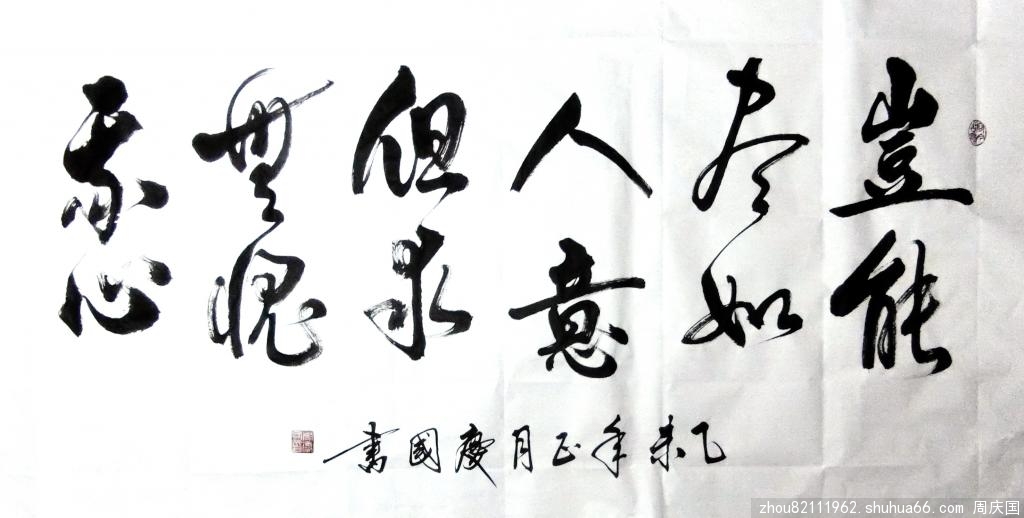 豈能
尽如
人意
但求
無愧
我心
乙未年正月慶國書
zhou82111962.shuhua66.com 周庆国